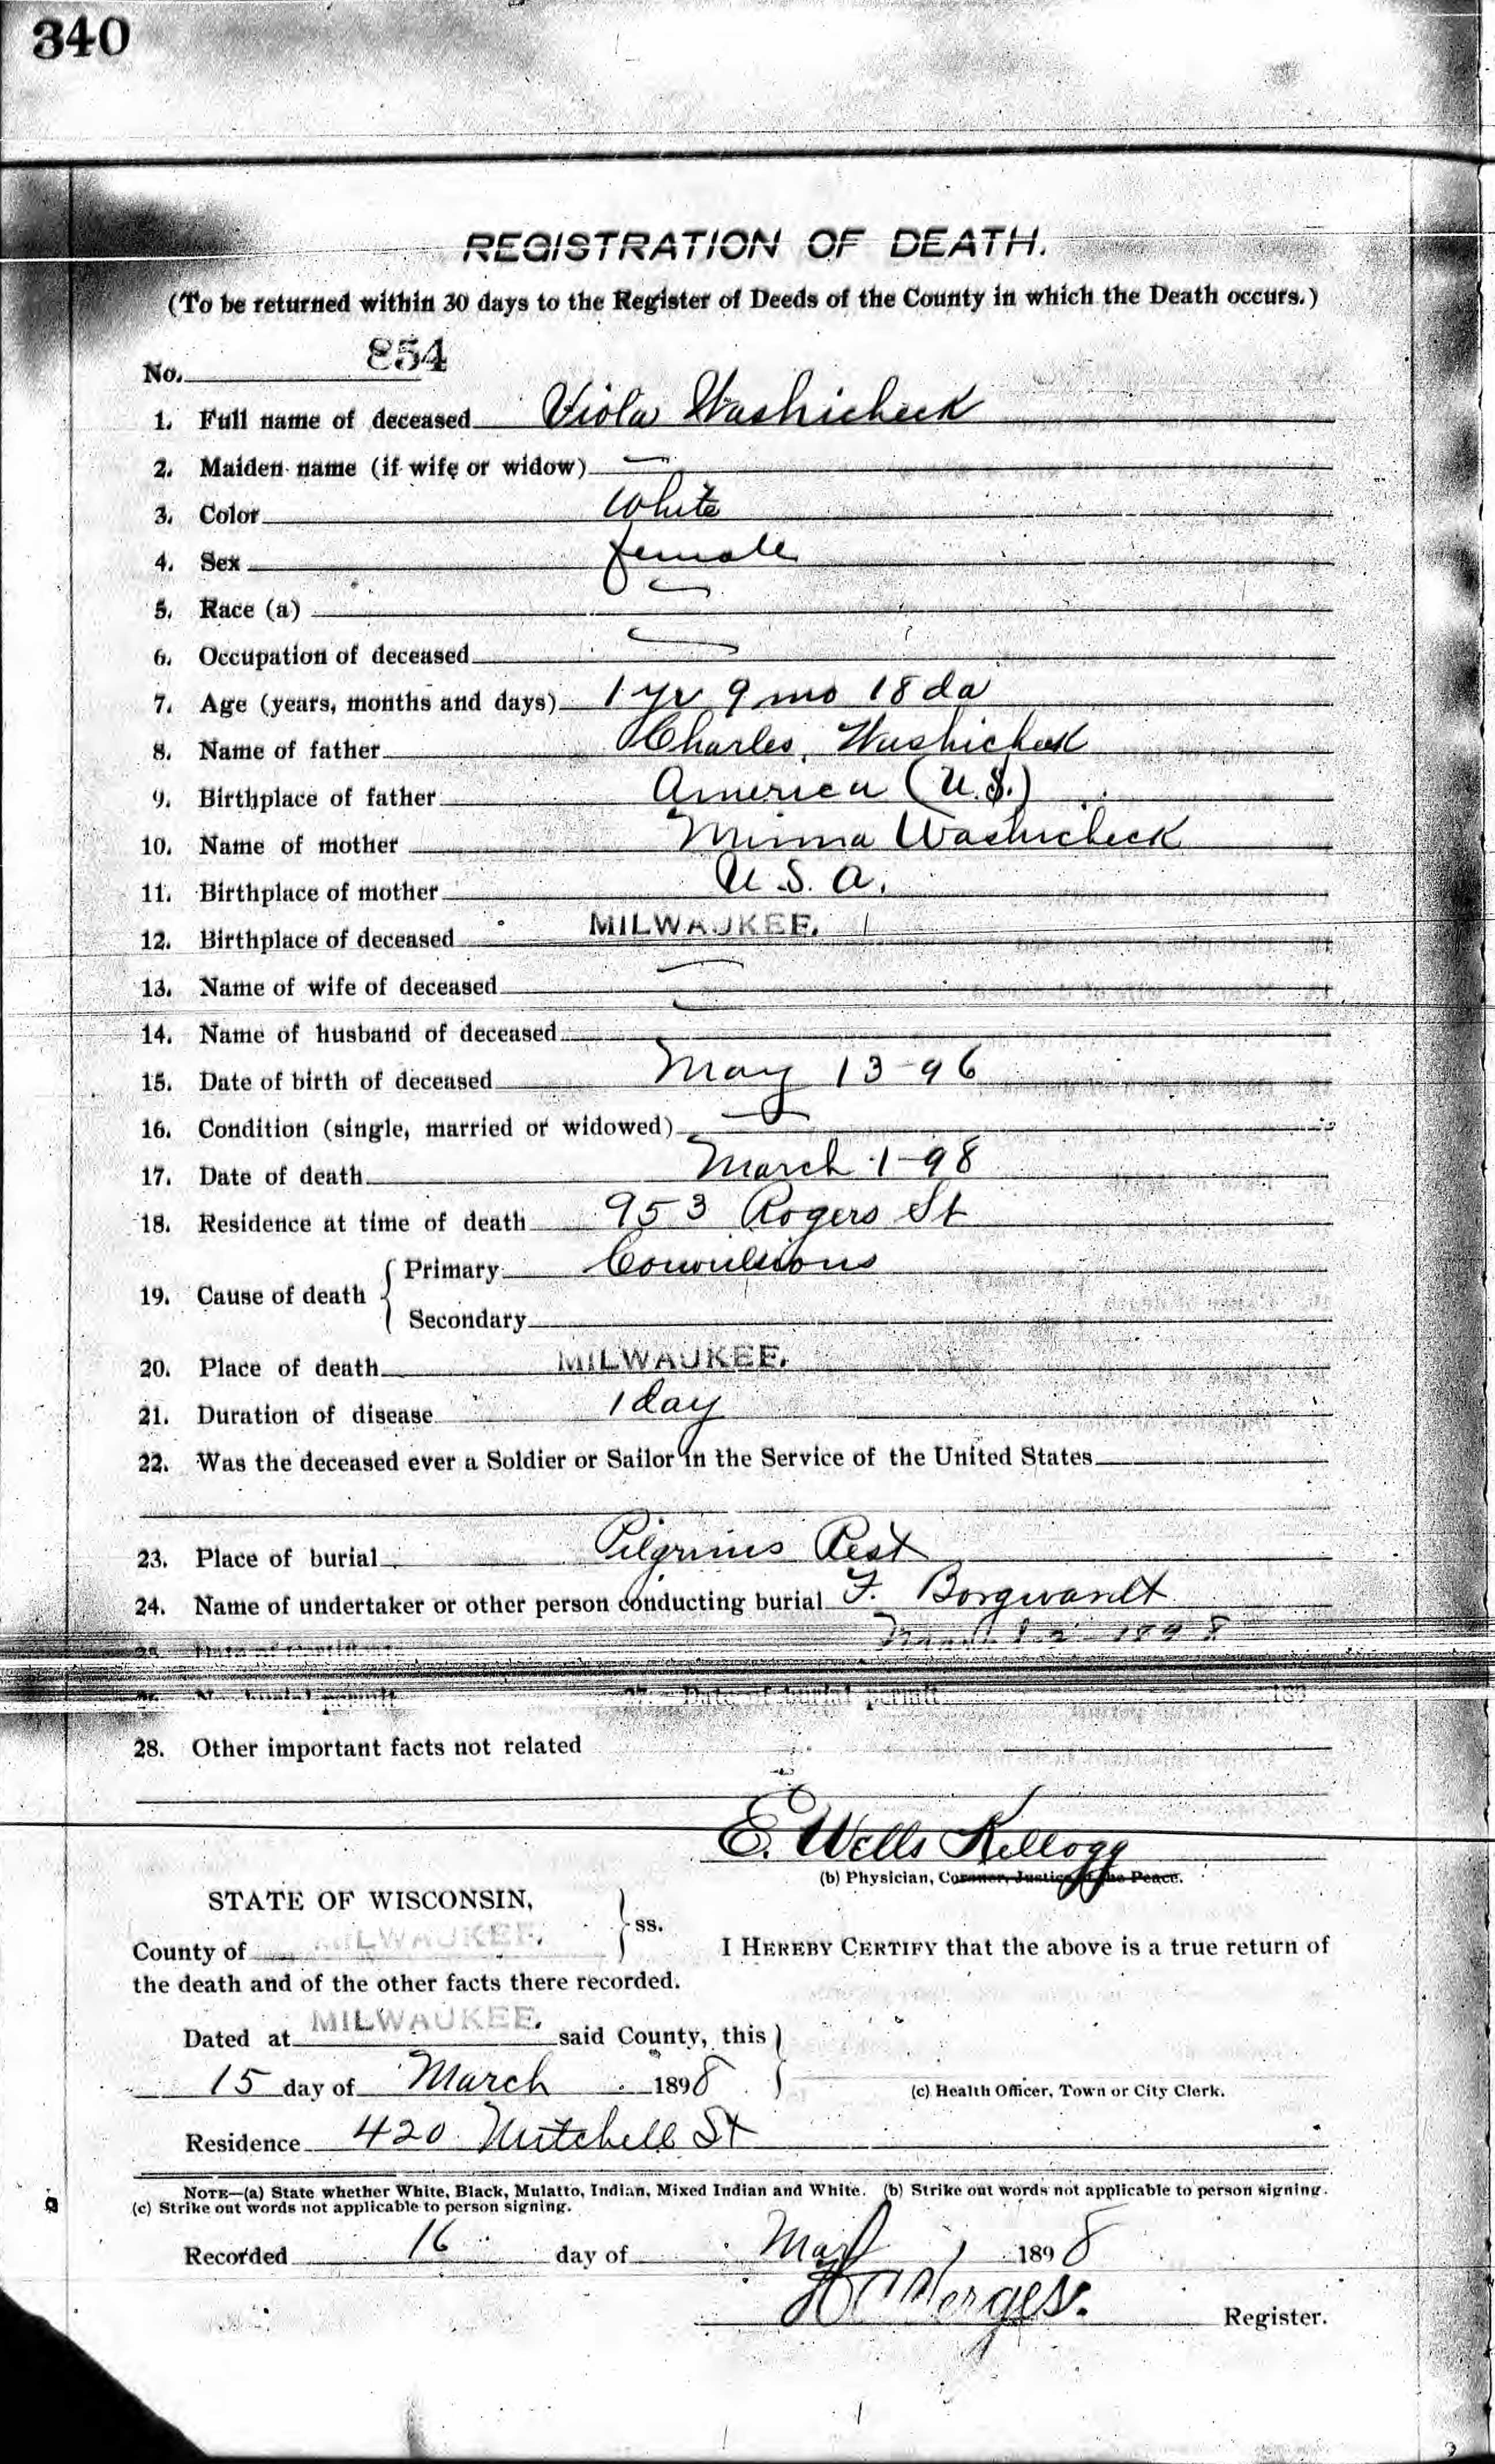 340
REGISTRATION OF DEATH.
(To be returned within 30 days to the Register of Deeds of the County in which the Death occurs.)
No. 854
1. Full name of deceased Viola Washicheck
2. Maiden name (if wife or widow) —
3. Color White
4. Sex female
5. Race (a) —
6. Occupation of deceased —
7. Age (years, months and days) 1 yr 9 mo 18 da
8. Name of father Charles Washicheck
9. Birthplace of father America (U.S.)
10. Name of mother Minna Washicheck
11. Birthplace of mother U.S.A.
12. Birthplace of deceased MILWAUKEE.
13. Name of wife of deceased —
14. Name of husband of deceased —
15. Date of birth of deceased May 13-96
16. Condition (single, married or widowed) —
17. Date of death March 1-98
18. Residence at time of death 953 Rogers St
19. Cause of death { Primary Convulsions
Secondary
20. Place of death MILWAUKEE.
21. Duration of disease 1 day
22. Was the deceased ever a Soldier or Sailor in the Service of the United States
23. Place of burial Pilgrims Rest
24. Name of undertaker or other person conducting burial F. Borgwardt
1898
Date of burial permit 189
28. Other important facts not related
E. Wells Kellogg
(b) Physician, Coroner, Justice of the Peace.
STATE OF WISCONSIN, } ss.
County of MILWAUKEE. I HEREBY CERTIFY that the above is a true return of
the death and of the other facts there recorded.
Dated at MILWAUKEE. said County, this }
15 day of March 1898
(c) Health Officer, Town or City Clerk.
Residence 420 Mitchell St
NOTE—(a) State whether White, Black, Mulatto, Indian, Mixed Indian and White. (b) Strike out words not applicable to person signing.
(c) Strike out words not applicable to person signing.
Recorded 16 day of Mar 1898
Register.